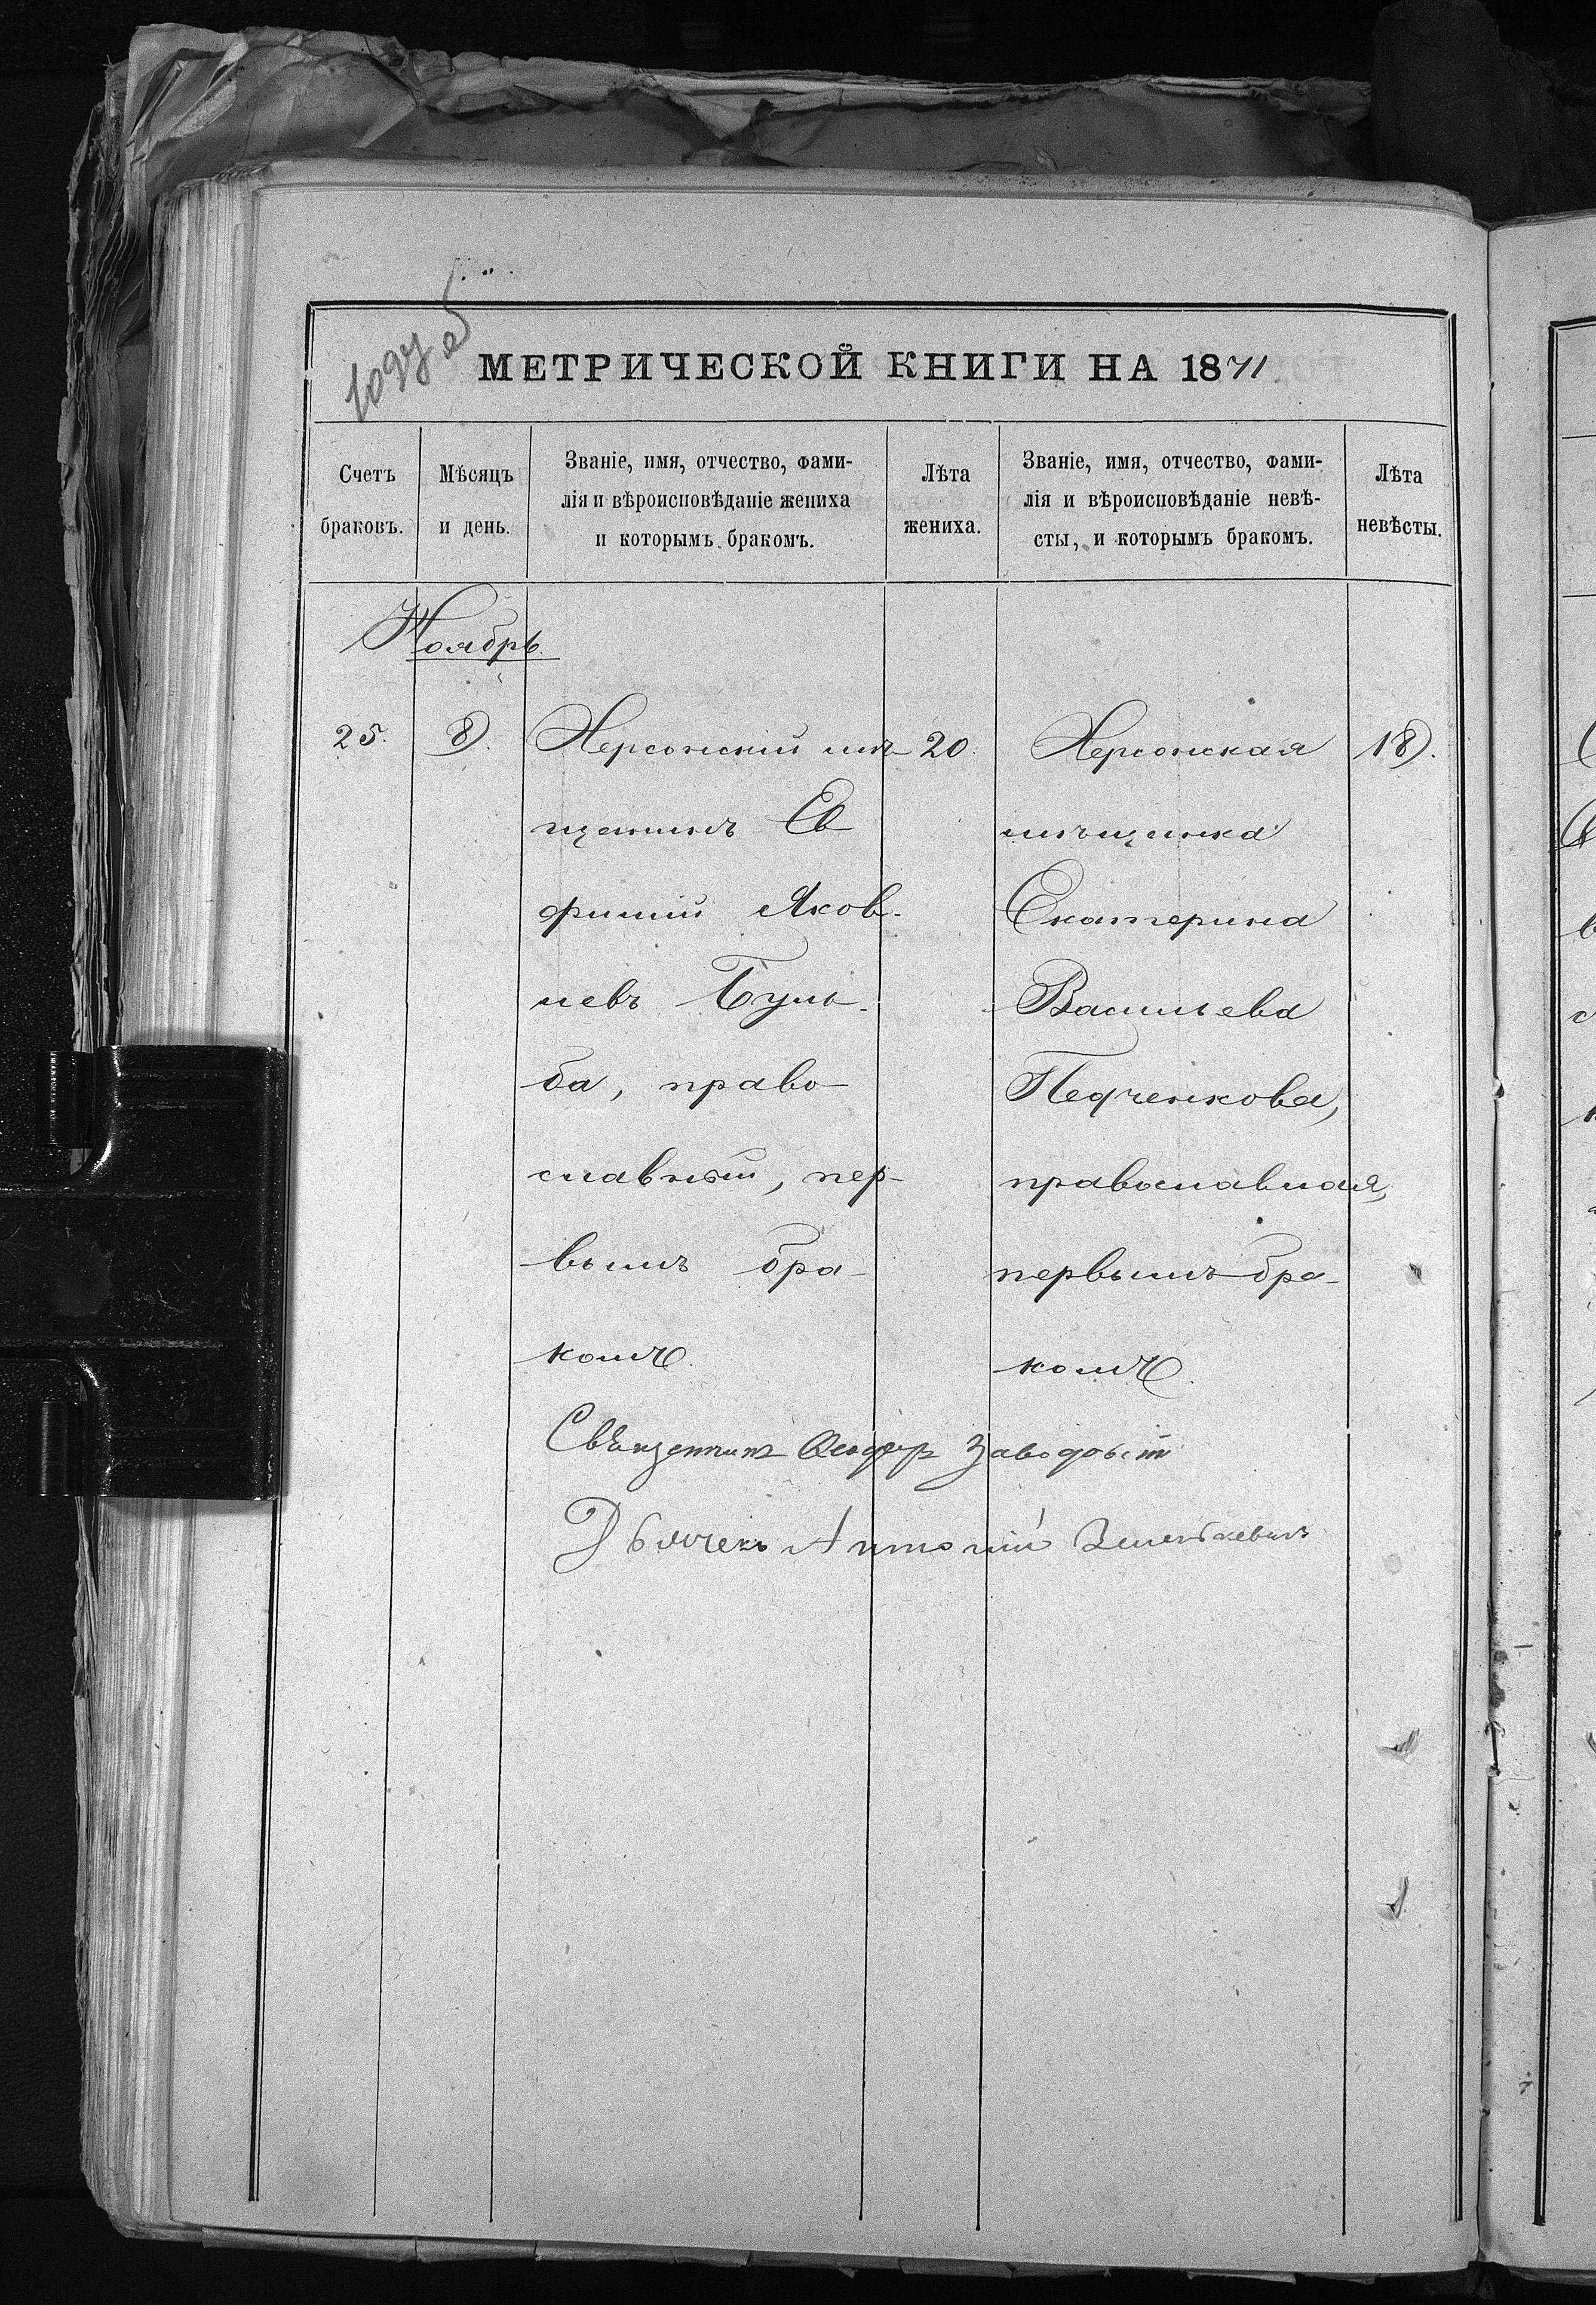 МЕТРИЧЕСКОЙ КНИГИ НА 1871
Счетъ браковъ.
Мѣсяцъ и день.
Званіе, имя, отчество, фами-
лія и вѣроисповѣданіе жениха
и которымъ бракомъ.
Лѣта жениха.
Званіе, имя, отчество, фами-
лія и вѣроисповѣданіе невѣ-
сты, и которымъ бракомъ.
Лѣта невѣсты.
Ноябрь
25. 8.
Херсонскій мѣ-
щанинъ Ев
фимій Яков-
левъ Буль-
ба, право-
славный, пер-
вымъ бра-
комъ.
20.
Херсонская
мѣщанка
Екатерина
Васильева
Педченкова,
православная,
первымъ бра-
комъ.
18.
Священникъ Ѳеодоръ Заводовскій
Дьячекъ Антоній